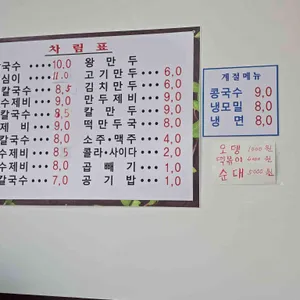 차림표
국수 ··· 10,0
심이 ··· 11.0
칼국수 ··· 8,5
수제비 ··· 9,0
칼국수 ··· 8.5
제비 ··· 9,0
국수 ··· 9,0
수제비 ··· 8,0
수제비 ··· 8,5
칼국수 ··· 7,0
왕만두
고기만두 ··· 6,0
김치만두 ··· 6,0
만두제비 ··· 9,0
칼만두 ··· 9,0
떡만두국 ··· 8,0
소주·맥주 ··· 4,0
콜라·사이다 ··· 2,0
곱빼기 ··· 1,0
공기밥 ··· 1,0
계절메뉴
콩국수 9,0
냉모밀 8,0
냉면 8,0
오뎅 1000원
떡볶이 4000원
순대 5000원